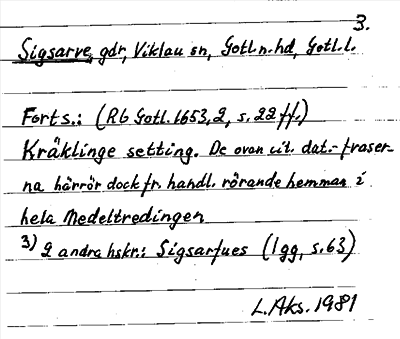 3.
Sigsarve, gdr, Viklau sn, Gotl.n.hd, Gotl.l.
Forts.: (Rb Gotl. 1653,2, s. 22 ff.)
Kräklinge setting. De ovan cit. dat.-fraser-
na härrör dock fr. handl. rörande hemman i
hela Medeltredingen
3) 2 andra hskr.: Sigsarfues (1gg, s. 63)
L. Aks. 1981